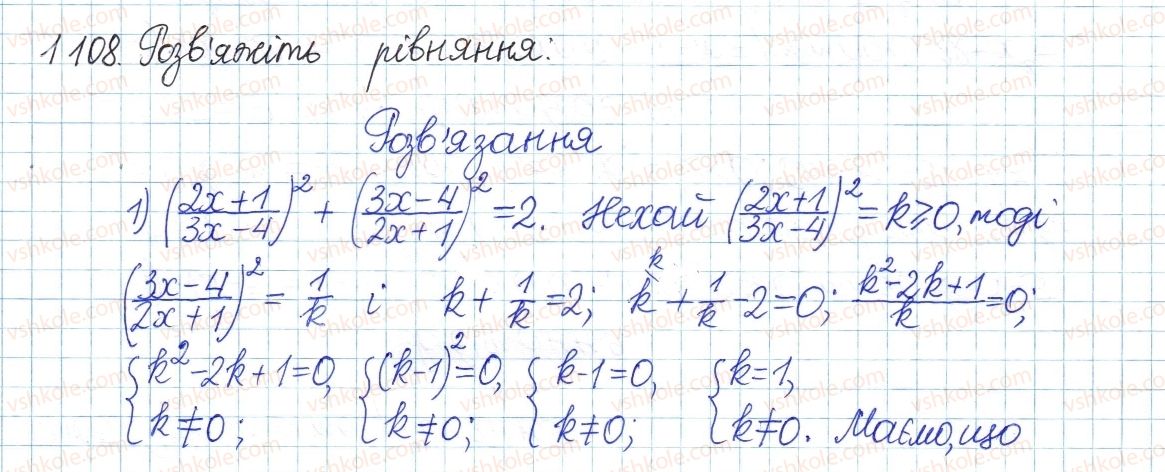 1108. Розв'яжіть рівняння:
Розв'язання
1) ((2x+1)/(3x-4))² + ((3x-4)/(2x+1))² = 2. Нехай ((2x+1)/(3x-4))² = k ⩾ 0, тоді
((3x-4)/(2x+1))² = 1/k і k + 1/k = 2; k^k + 1/k - 2 = 0; (k²-2k+1)/k = 0;
{k²-2k+1=0, {(k-1)²=0, {k-1=0, {k=1,
k≠0; k≠0; k≠0; k≠0. Маємо, що